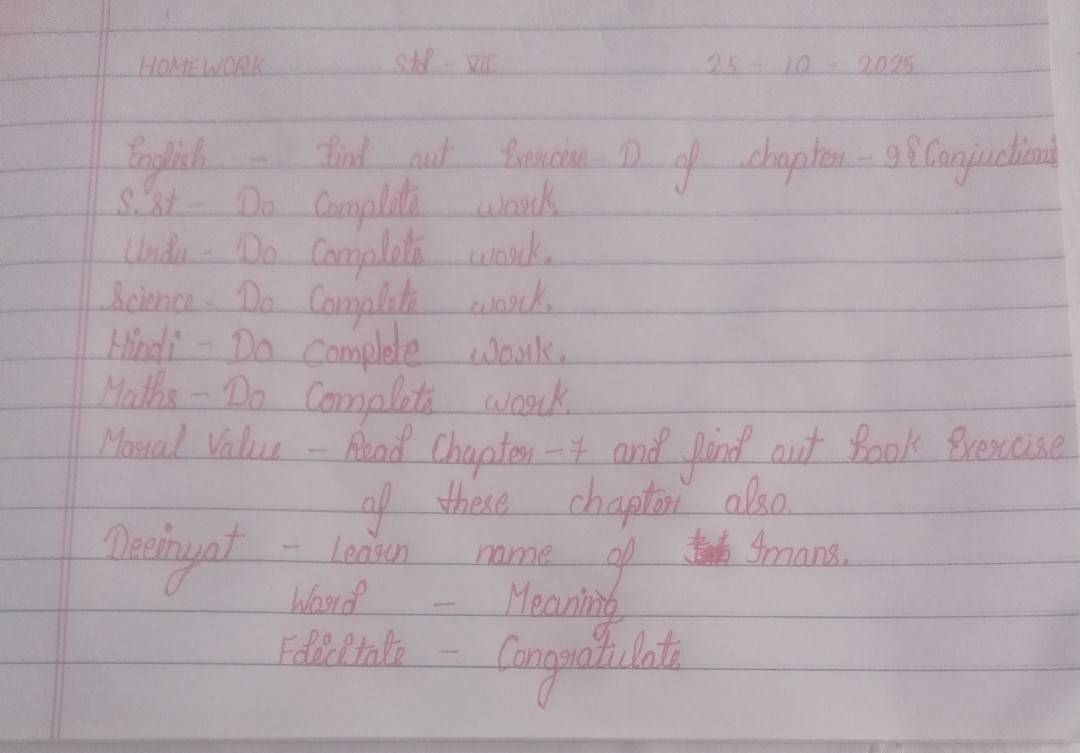 HOMEWORK Std - VII 25 - 10 - 2025
English - Find out Exercise - D of chapter - 9 {Conjuctions}
S.St - Do Complete work.
Urdu - Do Complete work.
Science - Do Complete work.
Hindi - Do Complete work.
Maths - Do Complete work.
Moral Value - Read Chapter - 7 and find out Book Exercise
of these chapter also.
Deeinyat - Learn name of Imans.
Word - Meaning
Felicitate - Congratulate